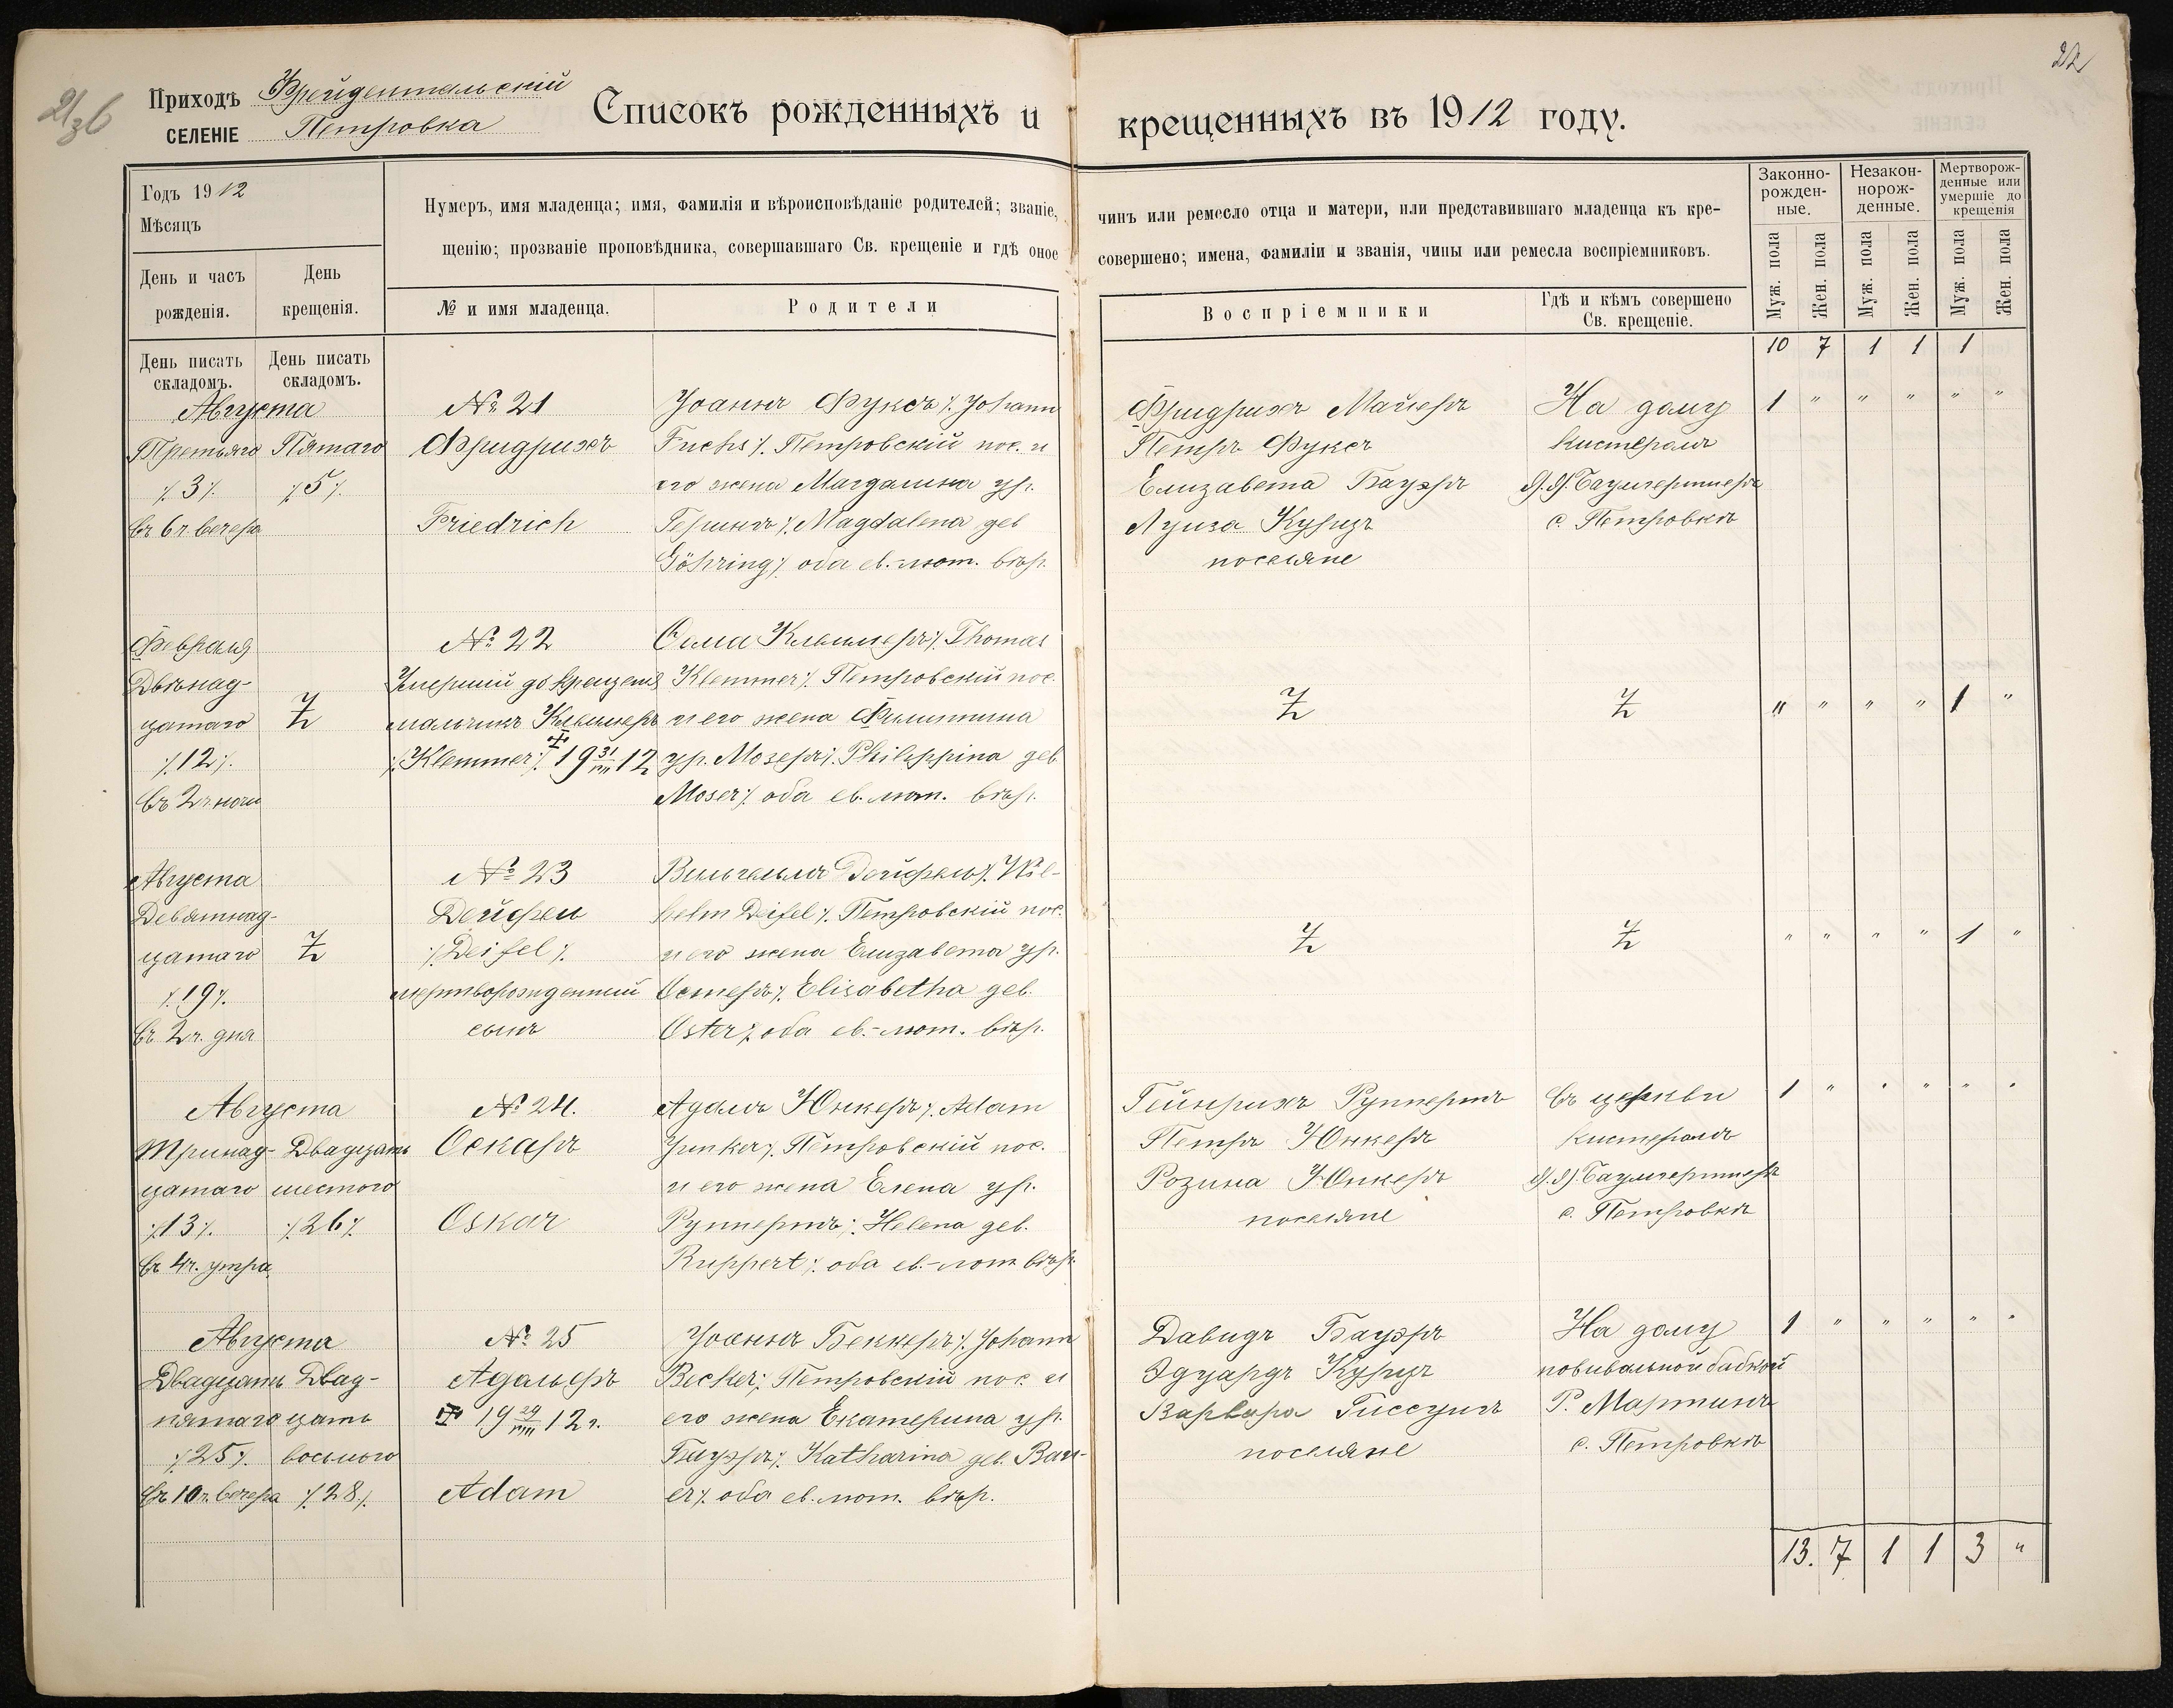 22
21/36
Приходъ Фрейдентальскій
СЕЛЕНІЕ Петровка
Списокъ рожденныхъ и крещенныхъ въ 1912 году.
Годъ 1912
Мѣсяцъ
День и часъ рожденія.
День крещенія.
День писать складомъ.
День писать складомъ.
Нумеръ, имя младенца; имя, фамилія и вѣроисповѣданіе родителей; званіе, чинъ или ремесло отца и матери, или представившаго младенца къ кре-
щенію; прозваніе проповѣдника, совершавшаго Св. крещеніе и гдѣ оное совершено; имена, фамиліи и званія, чины или ремесла воспріемниковъ.
№ и имя младенца.
Родители
Воспріемники
Гдѣ и кѣмъ совершено
Св. крещеніе.
Законно-
рожден-
ные.
Незакон-
норож-
денные.
Мертворож-
денные или
умершіе до
крещенія
Муж. пола
Жен. пола
Муж. пола
Жен. пола
Муж. пола
Жен. пола
10 7 1 1 1
Августа
Третьяго
/:3:/
въ 6 ч. вечера
Пятаго
/:5:/
№ 21
Фридрихъ
Friedrich
Іоаннъ Фуксъ /: Johann
Fuchs :/ Петровскій пос. и
его жена Магдалина ур.
Герингъ /: Magdalena geb
Göhring :/ оба ев.-лют. вѣр.
Фридрихъ Майеръ
Петръ Фуксъ
Елизавета Бауэръ
Луиза Курцъ
поселяне
На дому
кистеромъ
Я. Я. Баумгертнеръ
с. Петровкѣ
1 " " " " "
Февраля
Двѣнад-
цатаго
/:12:/
въ 2 ч. ночи
№ 22
Умершій до крещенія
мальчикъ Клеммеръ
/: Klemmer :/ 19 31/VIII 12
Ѳома Клеммеръ /: Thomas
Klemmer :/ Петровскій пос.
и его жена Филиппина
ур. Мозеръ /: Philippina geb
Moser :/ оба ев. лют. вѣр.
" " " " 1 "
Августа
Девятнад-
цатаго
/:19:/
въ 2 ч. дня
№ 23
Дейфель
/: Deifel :/
мертворожденный
сынъ
Вильгельмъ Дейфель /: Wil-
helm Deifel :/ Петровскій пос.
и его жена Елизавета ур.
Остеръ /: Elisabetha geb.
Oster :/ оба ев.-лют. вѣр.
" " " " 1 "
Августа
Тринад-
цатаго
/:13:/
въ 4 ч. утра
Двадцать
шестого
/:26:/
№ 24.
Оскаръ
Oskar
Адамъ Юнкеръ /: Adam
Junker :/ Петровскій пос.
и его жена Елена ур.
Руппертъ /: Helena geb.
Ruppert :/ оба ев.-лют. вѣр.
Гейнрихъ Руппертъ
Петръ Юнкеръ
Розина Юнкеръ
поселяне
въ церкви
кистеромъ
Я. Я. Баумгертнеръ
с. Петровкѣ
1 " " " " "
Августа
Двадцать
пятаго
/:25:/
въ 10 ч. вечера
Двад-
цать
восьмого
/:28:/
№ 25
19 29/VIII 12 г.
Adam
Іоаннъ Беккеръ /: Johann
Becker :/ Петровскій пос. и
его жена Екатерина ур.
Бауэръ /: Katharina geb. Bau-
er :/ оба ев. лют. вѣр.
Давидъ Бауэръ
Эдуардъ Курцъ
Варвара Гиссунгъ
поселяне
На дому
повивальной бабкой
Р. Мартинъ
с. Петровкѣ
1 " " " " "
13. 7 1 1 3 "